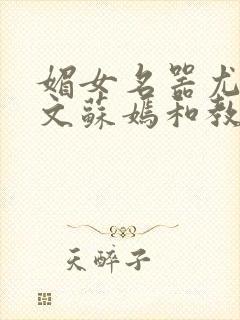 媚女名器尤
文蘇媽和教
天醉子